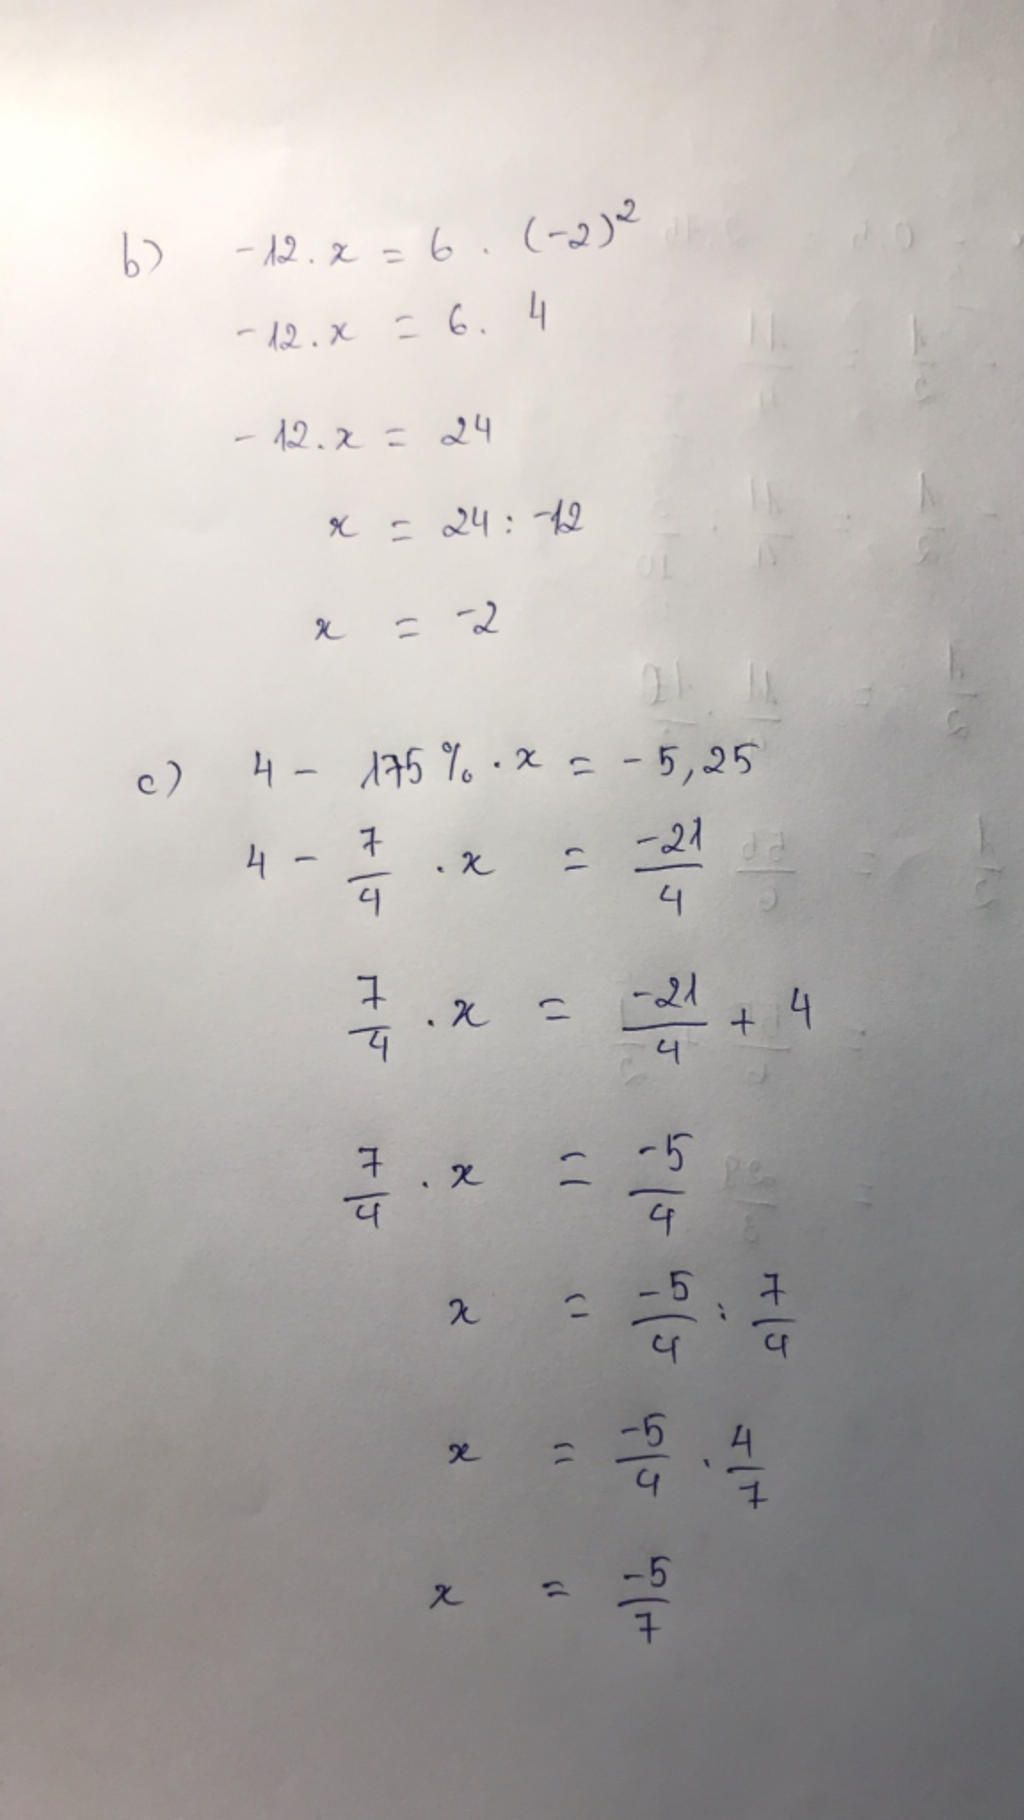 b) -12.x = 6 . (-2)²
-12.x = 6. 4
-12.x = 24
x = 24: -12
x = -2
c) 4 - 175%.x = -5,25
4 - 7/4 . x = -21/4
7/4 . x = -21/4 + 4
7/4 . x = -5/4
x = -5/4 : 7/4
x = -5/4 . 4/7
x = -5/7